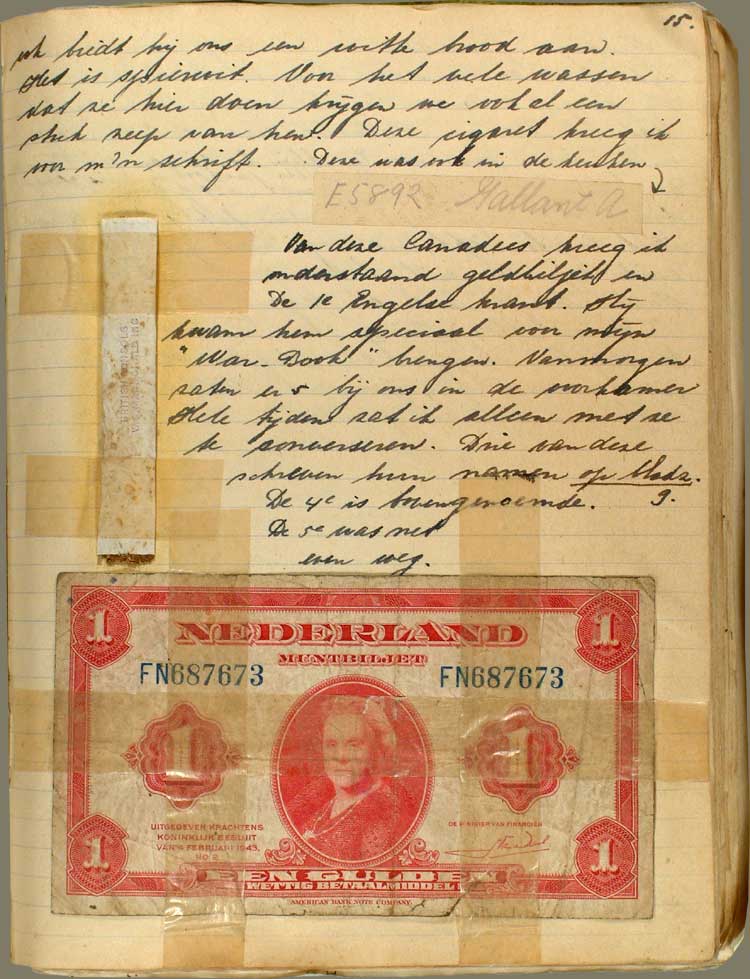 15.
ook biedt hij ons een witte brood aan.
Het is spierwit. Voor het vele wassen
dat ze hier doen krijgen we ook al een
stuk zeep van hen. Deze cigaret kreeg ik
voor m'n schrift. Deze was ook in de keuken
E5892 Gallant A
Van deze Canadees kreeg ik
onderstaand geldbiljet en
De 1e Engelse krant. Hij
kwam hem speciaal voor mijn
"War-Book" brengen. Vanmorgen
zaten er 5 bij ons in de voorkamer
Hele tijden zat ik alleen met ze
te converseren. Drie van deze
schreven hun namen op bladz.
De 4e is bovengenoemde. 9.
De 5e was net
even weg.
1 NEDERLAND 1
MUNTBILJET
FN687673 FN687673
1 1
UITGEGEVEN KRACHTENS
KONINKLIJK BESLUIT
VAN 4 FEBRUARI 1943,
NO. 2
DE MINISTER VAN FINANCIËN
1 EEN GULDEN 1
WETTIG BETAALMIDDEL
AMERICAN BANK NOTE COMPANY